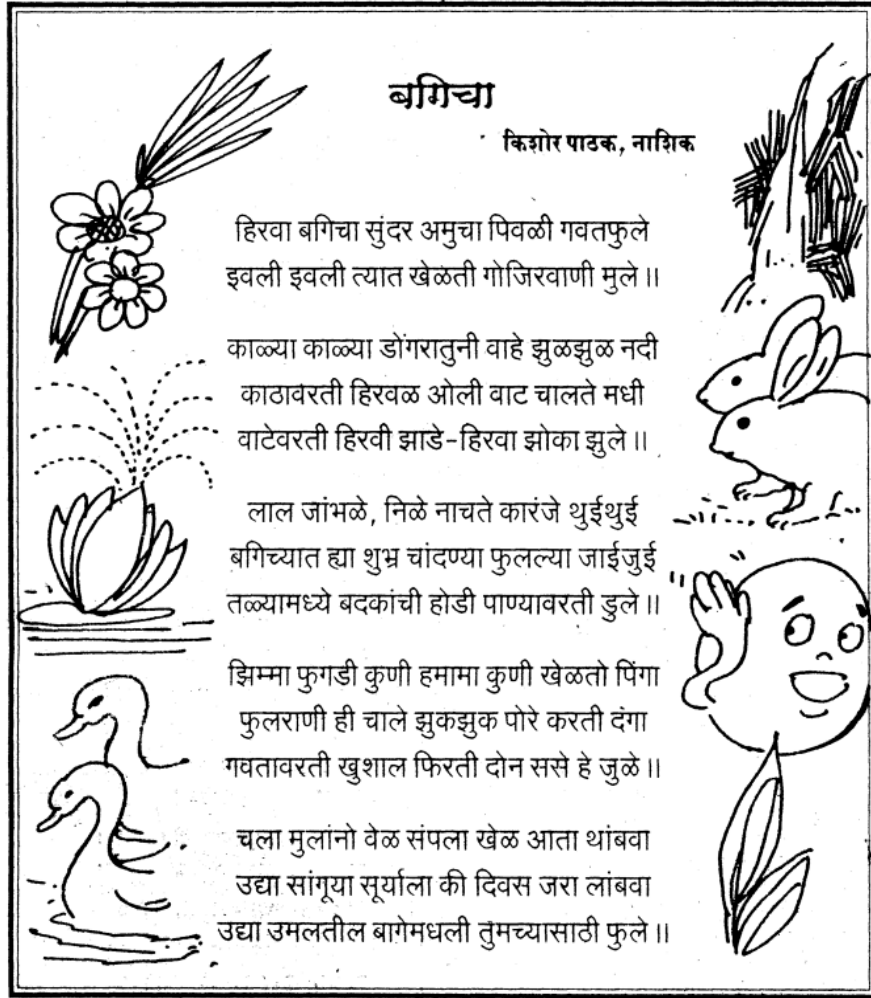 बगिचा
किशोर पाठक, नाशिक
हिरवा बगिचा सुंदर अमुचा पिवळी गवतफुले
इवली इवली त्यात खेळती गोजिरवाणी मुले॥
काळ्या काळ्या डोंगरातुनी वाहे झुळझुळ नदी
काठावरती हिरवळ ओली वाट चालते मधी
वाटेवरती हिरवी झाडे-हिरवा झोका झुले॥
लाल जांभळे, निळे नाचते कारंजे थुईथुई
बगिच्यात ह्या शुभ्र चांदण्या फुलल्या जाईजुई
तळ्यामध्ये बदकांची होडी पाण्यावरती डुले॥
झिम्मा फुगडी कुणी हमामा कुणी खेळतो पिंगा
फुलराणी ही चाले झुकझुक पोरे करती दंगा
गवतावरती खुशाल फिरती दोन ससे हे जुळे॥
चला मुलांनो वेळ संपला खेळ आता थांबवा
उद्या सांगूया सूर्याला की दिवस जरा लांबवा
उद्या उमलतील बागेमधली तुमच्यासाठी फुले॥